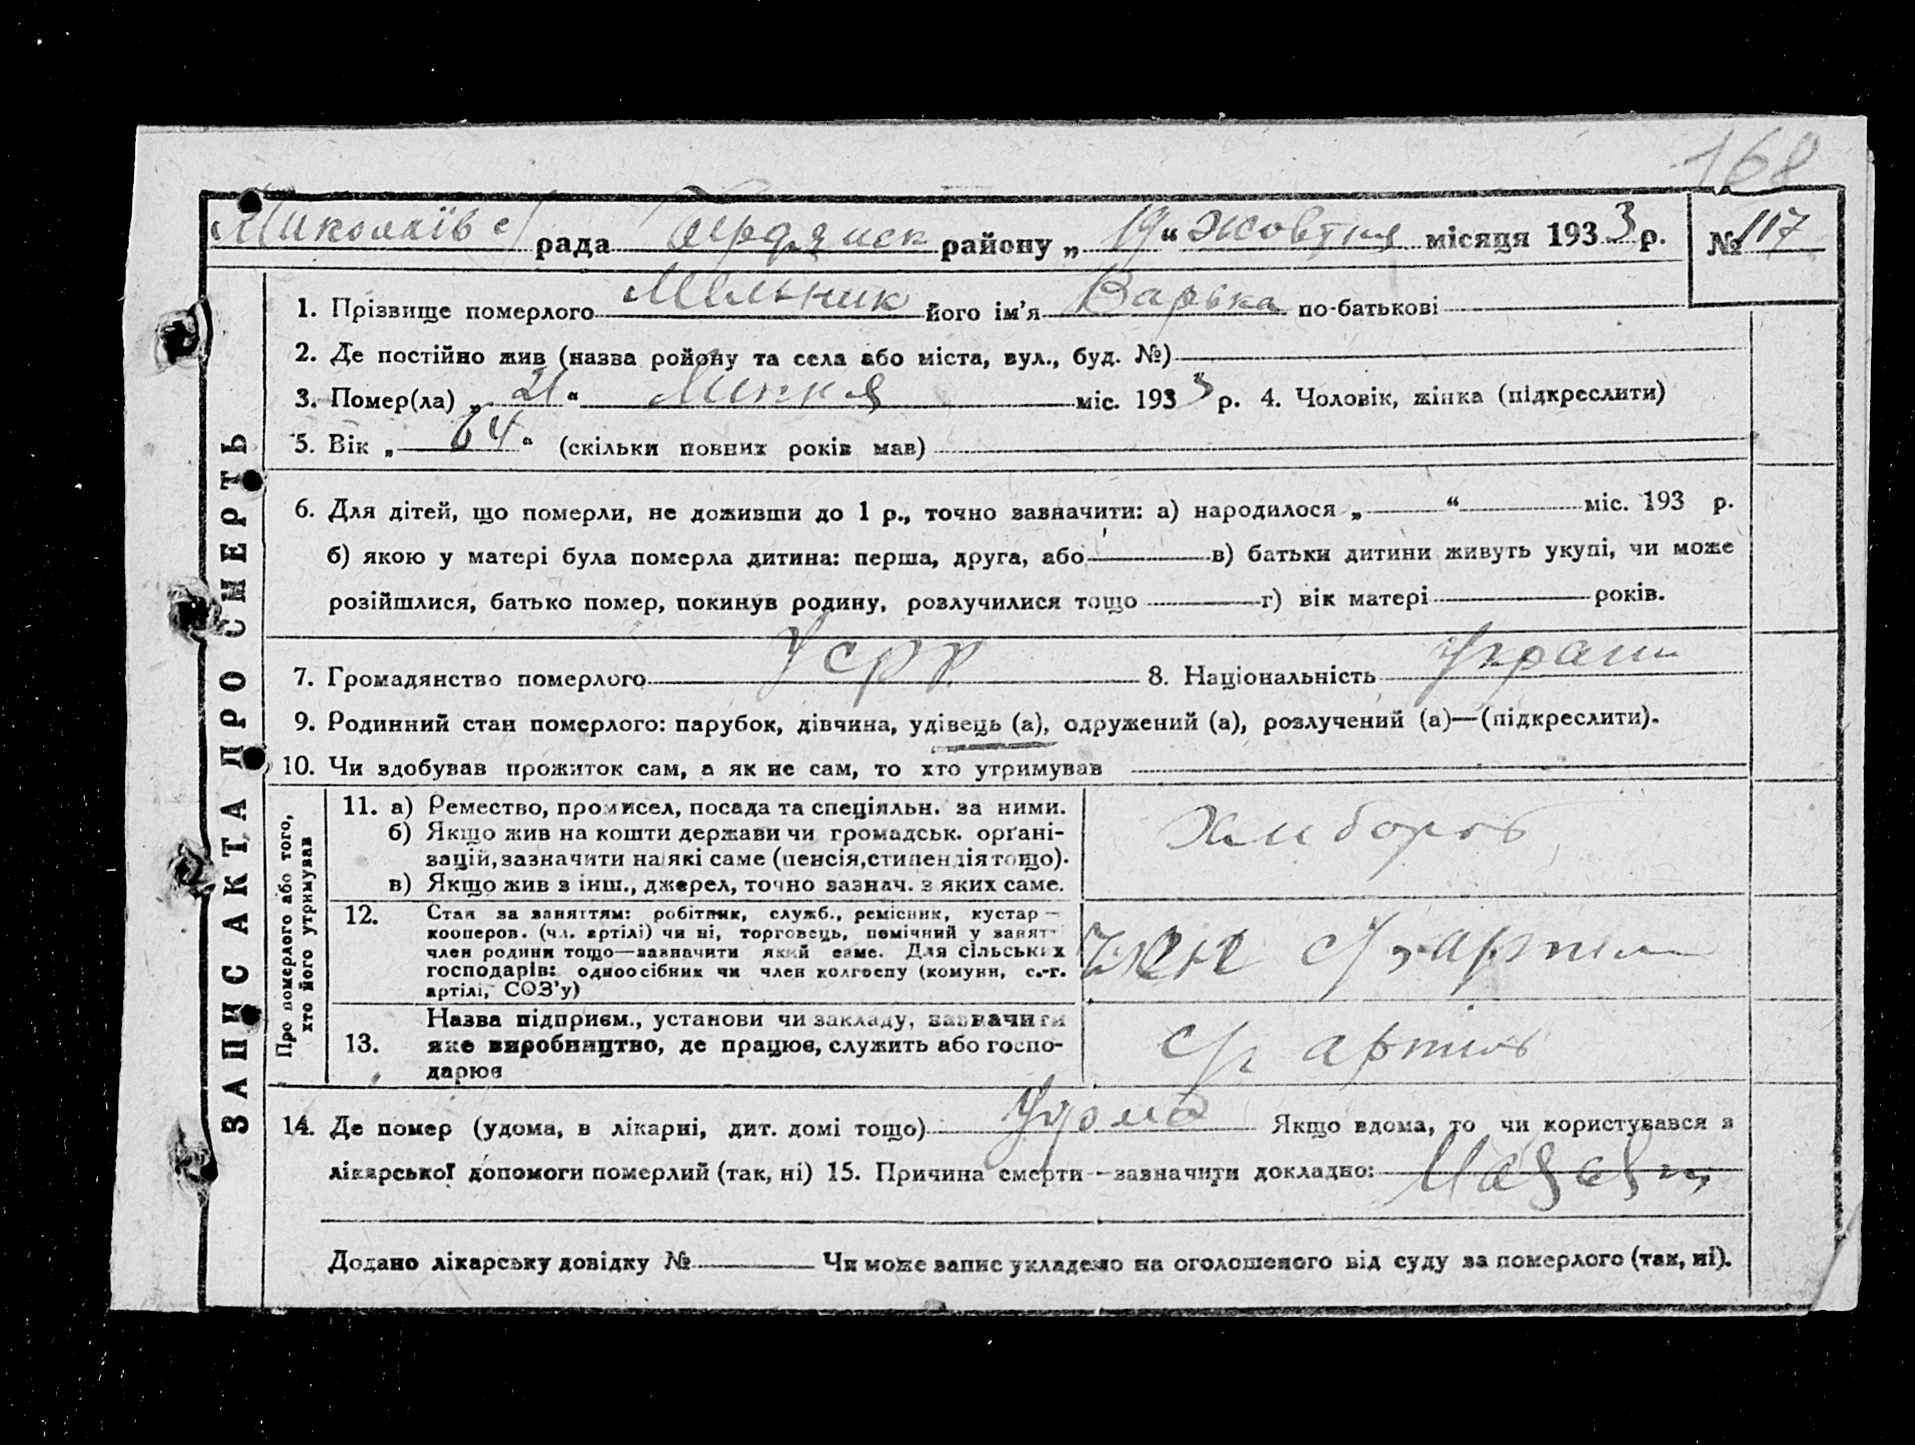 168
Миколаїв рада Бердянск району „ 19 “ жовтня місяця 1933 р. № 117
ЗАПИС АКТА ПРО СМЕРТЬ
1. Прізвище померлого Мельник його ім'я Варька по-батькові
2. Де постійно жив (назва ройону та села або міста, вул., буд. №)
3. Помер(ла) „ 21 “ Липня міс. 1933 р. 4. Чоловік, жінка (підкреслити)
5. Вік „ 64 “ (скільки повних років мав)
6. Для дітей, що померли, не доживши до 1 р., точно зазначити: а) народилося „ “ міс. 193 р.
б) якою у матері була померла дитина: перша, друга, або в) батьки дитини живуть укупі, чи може
розійшлися, батько помер, покинув родину, розлучилися тощо г) вік матері років.
7. Громадянство померлого УСРР 8. Національність Украин
9. Родинний стан померлого: парубок, дівчина, удівець (а), одружений (а), розлучений (а)—(підкреслити).
10. Чи здобував прожиток сам, а як не сам, то хто утримував
Про померлого або того,
хто його утримував
11. а) Ремество, промисел, посада та спеціяльн. за ними.
б) Якщо жив на кошти держави чи громадськ. орґані-
зацій, зазначити на які саме (пенсія, стипендія тощо).
в) Якщо жив з інш., джерел, точно зазнач. з яких саме.
Хлибороб
12. Стан за заняттям: робітник, служб., ремісник, кустар —
кооперов. (чл. артілі) чи ні, торговець, помічний у занят-
член родини тощо—зазначити який саме. Для сільських
господарів: одноосібник чи член колгоспу (комуни, с.-г.
артілі, СОЗ'у)
член с/г артели
13. Назва підприєм., установи чи закладу, зазначити
яке виробництво, де працює, служить або госпо-
дарює
с/г артіль
14. Де помер (удома, в лікарні, дит. домі тощо) Удома Якщо вдома, то чи користувався з
лікарської допомоги померлий (так, ні) 15. Причина смерти—зазначити докладно:
Додано лікарську довідку № Чи може запис укладено на оголошеного від суду за померлого (так, ні).